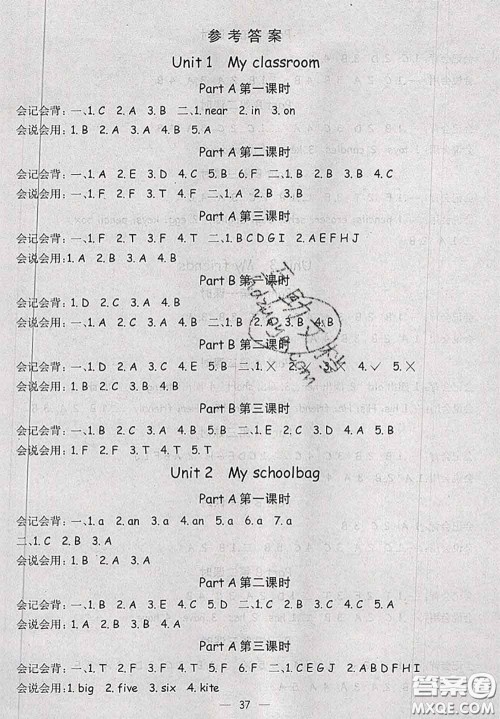 参考答案
Unit 1 My classroom
Part A 第一课时
会记会背:一、1.C 2.A 3.B 二、1.near 2.in 3.on
会说会用:1.B 2.A 3.B 4.B 5.A
Part A 第二课时
会记会背:一、1.A 2.E 3.D 4.C 5.B 6.F 二、1.B 2.A 3.B 4.C
会说会用:1.D 2.C 3.A 4.B
Part A 第三课时
会记会背:一、1.F 2.T 3.F 4.T 二、1.BCDGI 2.AEFHJ
会说会用:1.B 2.C 3.A
Part B 第一课时
会记会背:1.D 2.C 3.A 4.B
会说会用:一、1.A 2.B 二、1.B 2. 3.B 4.B
Part B 第二课时
会记会背:一、1.C 2.A 3.B 二、1.× 2. 4.✓ 5.×
会说会用:1.B 2.D 3.A 4.C
Part B 第三课时
会记会背:一、1.F 2.F 3.T 4.T 二、1.A 2.A 3.B 4.B
会说会用:1.F 2.F 3.T 4.T 5.T
Unit 2 My schoolbag
Part A 第一课时
会记会背:一、1.a 2.an 3.a 4.an 5.a 6.a 7.a
二、1.C 2.B 3.A
会说会用:1.B 2.A 3.B
Part A 第二课时
会记会背:一、1.B 2.A 3.E 4.C 5.D 二、1.C 2.A 3.D 4.B
会说会用:1.A 2.B
Part A 第三课时
会记会背:一、1.T 2.F 3.F 4.T 二、1.CEGJ 2.ABDFHI
会说会用:1.big 2.five 3.six 4.kite
37
答案圈
MXQE.COM